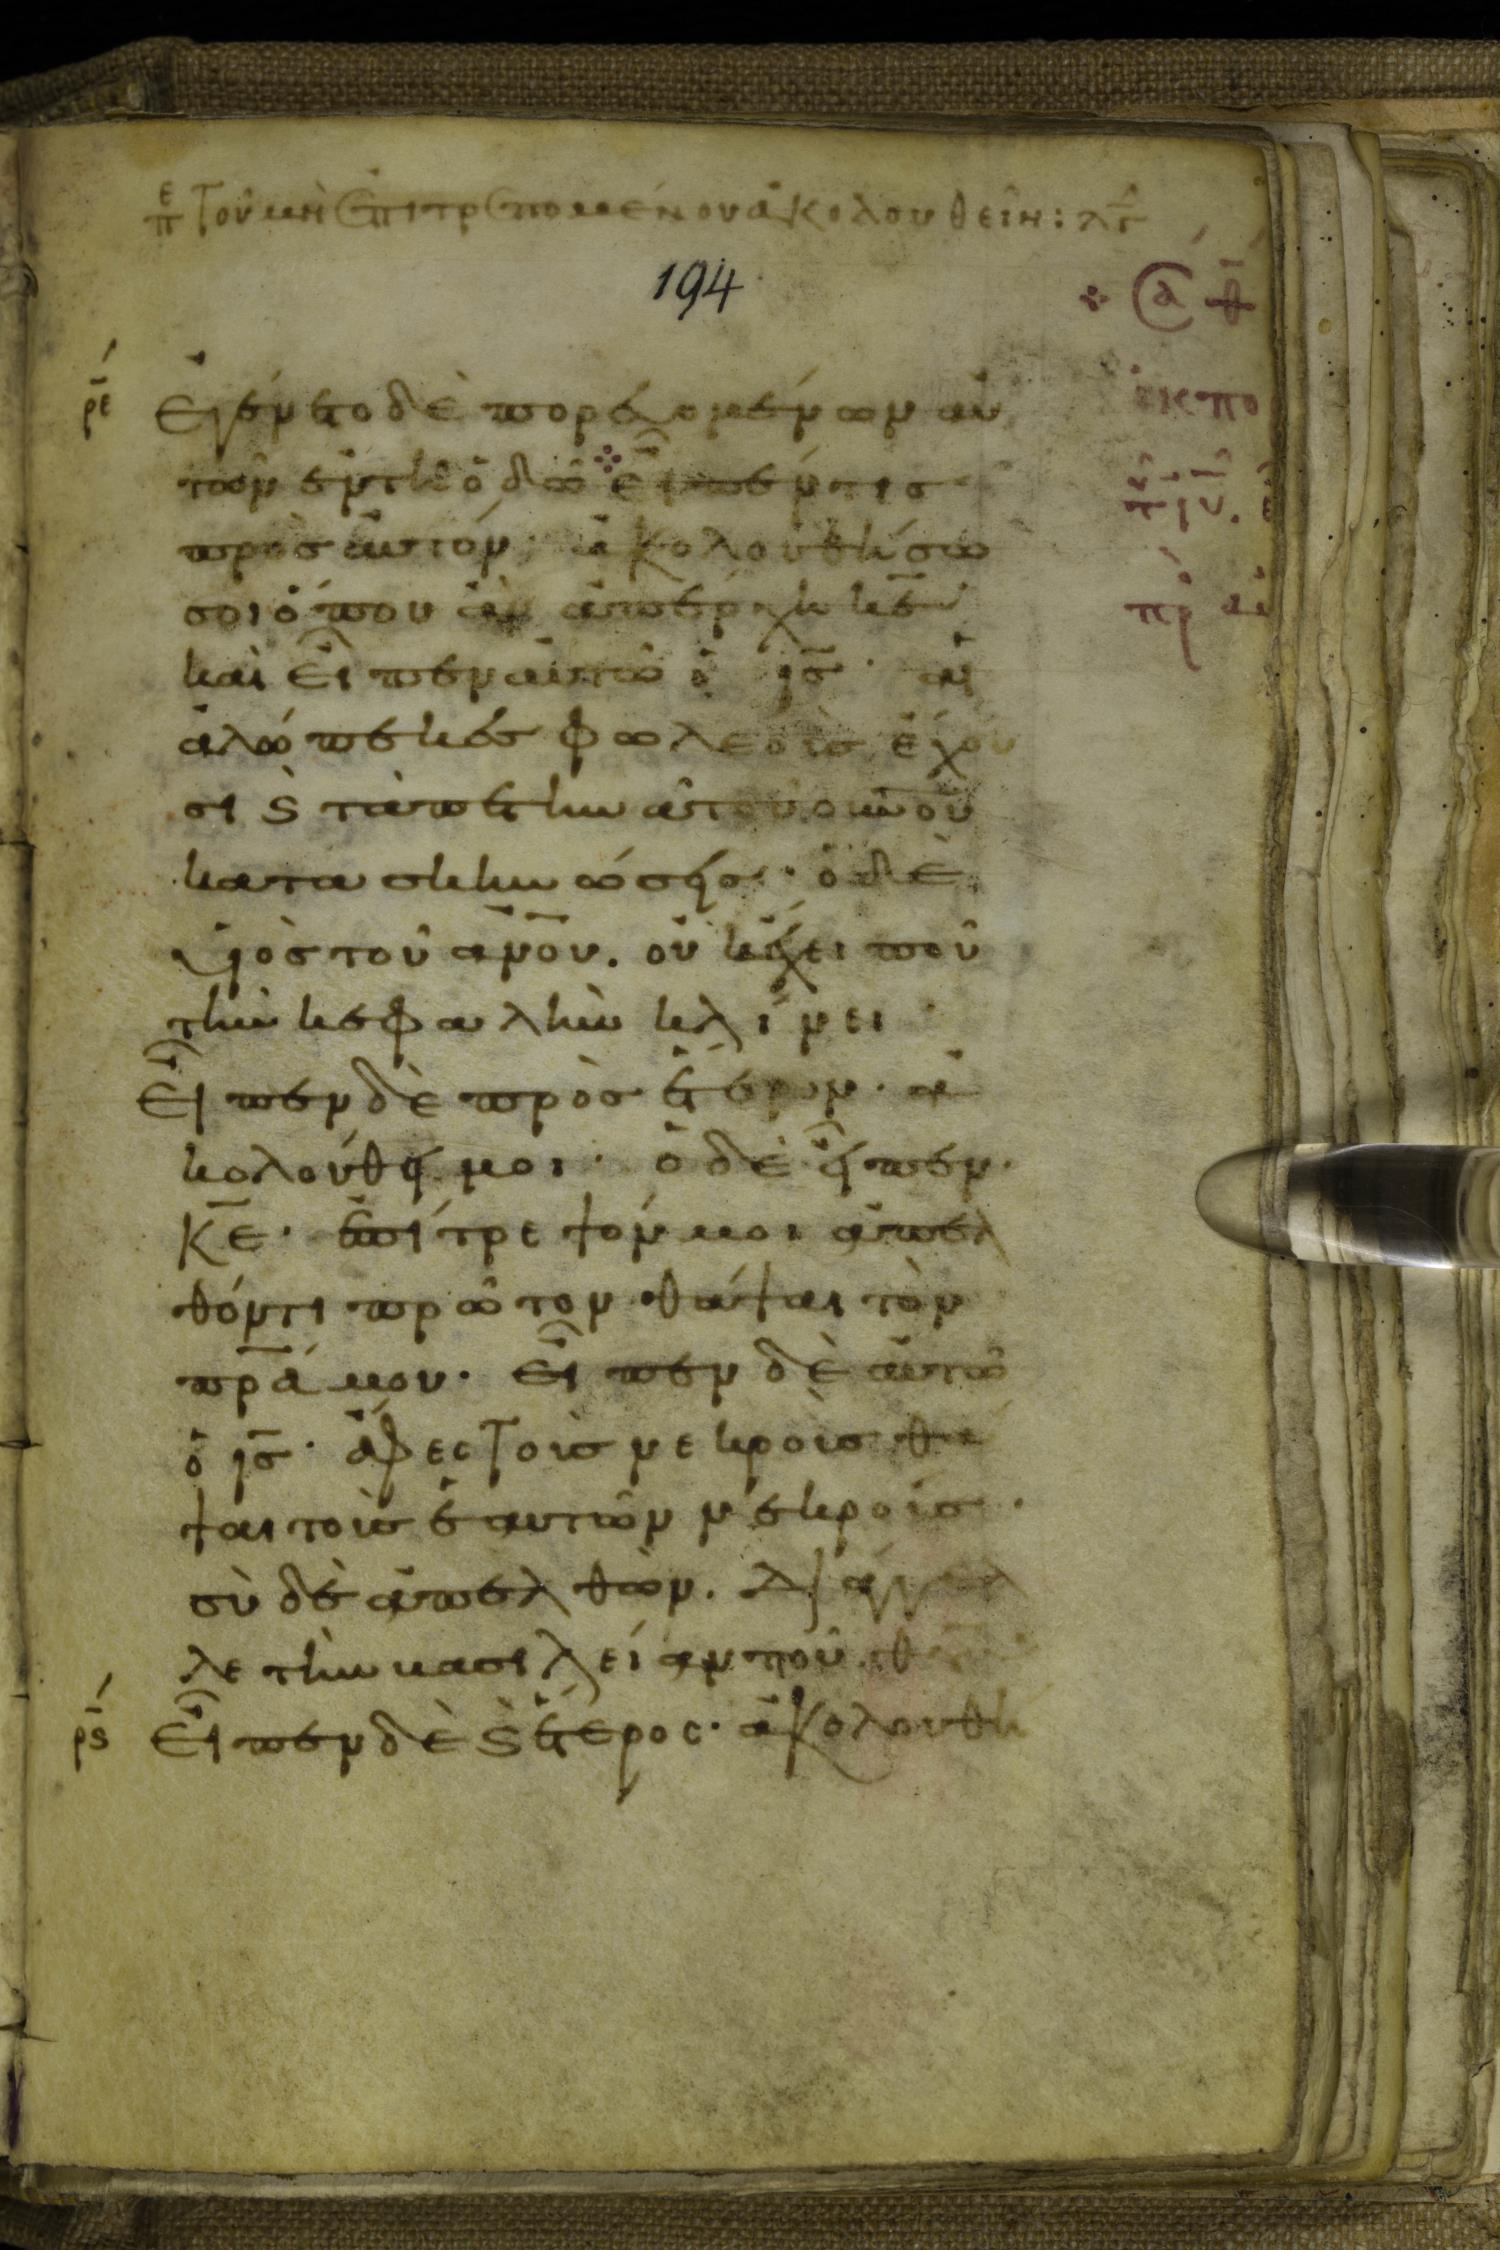 Τοῦ μὴ ἐπιτρεπομένου ἀκολουθεῖν: λγ
194
ρε ἐγένετο δὲ πορευομένων αὐ
τῶν ἐν τῆ ὁδῶ εἶπέν τις
πρὸς αὐτόν· ἀκολουθήσω
σοι ὅπου ἂν ἀπέρχη κε
καὶ εἶπεν αὐτῶ ὁ ις· αἱ
ἀλώπεκες φωλεοὺς ἔχου
σι ϛ τὰ πετεινὰ τοῦ ουνου
κατασκηνώσεις· ὁ δὲ
υἱὸς τοῦ ανου. οὐκ ἔχει ποῦ
τὴν κεφαλὴν κλίνει
εἶπεν δὲ πρὸς ἕτερον· ἀ
κολούθει μοι· ὁ δὲ εἶπεν·
κε· ἐπίτρεψόν μοι ἀπελ
θόντι πρῶτον θάψαι τὸν
πρα μου· εἶπεν δὲ αὐτῶ
ὁ ις· ἄφες τοὺς νεκροὺς θά
ψαι τοὺς ἑαυτῶν νεκρούς·
σὺ δὲ ἀπελθὼν. διάγγελ
λε τὴν βασιλείαν τοῦ
ρϛ εἶπεν δὲ ϛ ἕτερος· ἀκολουθή